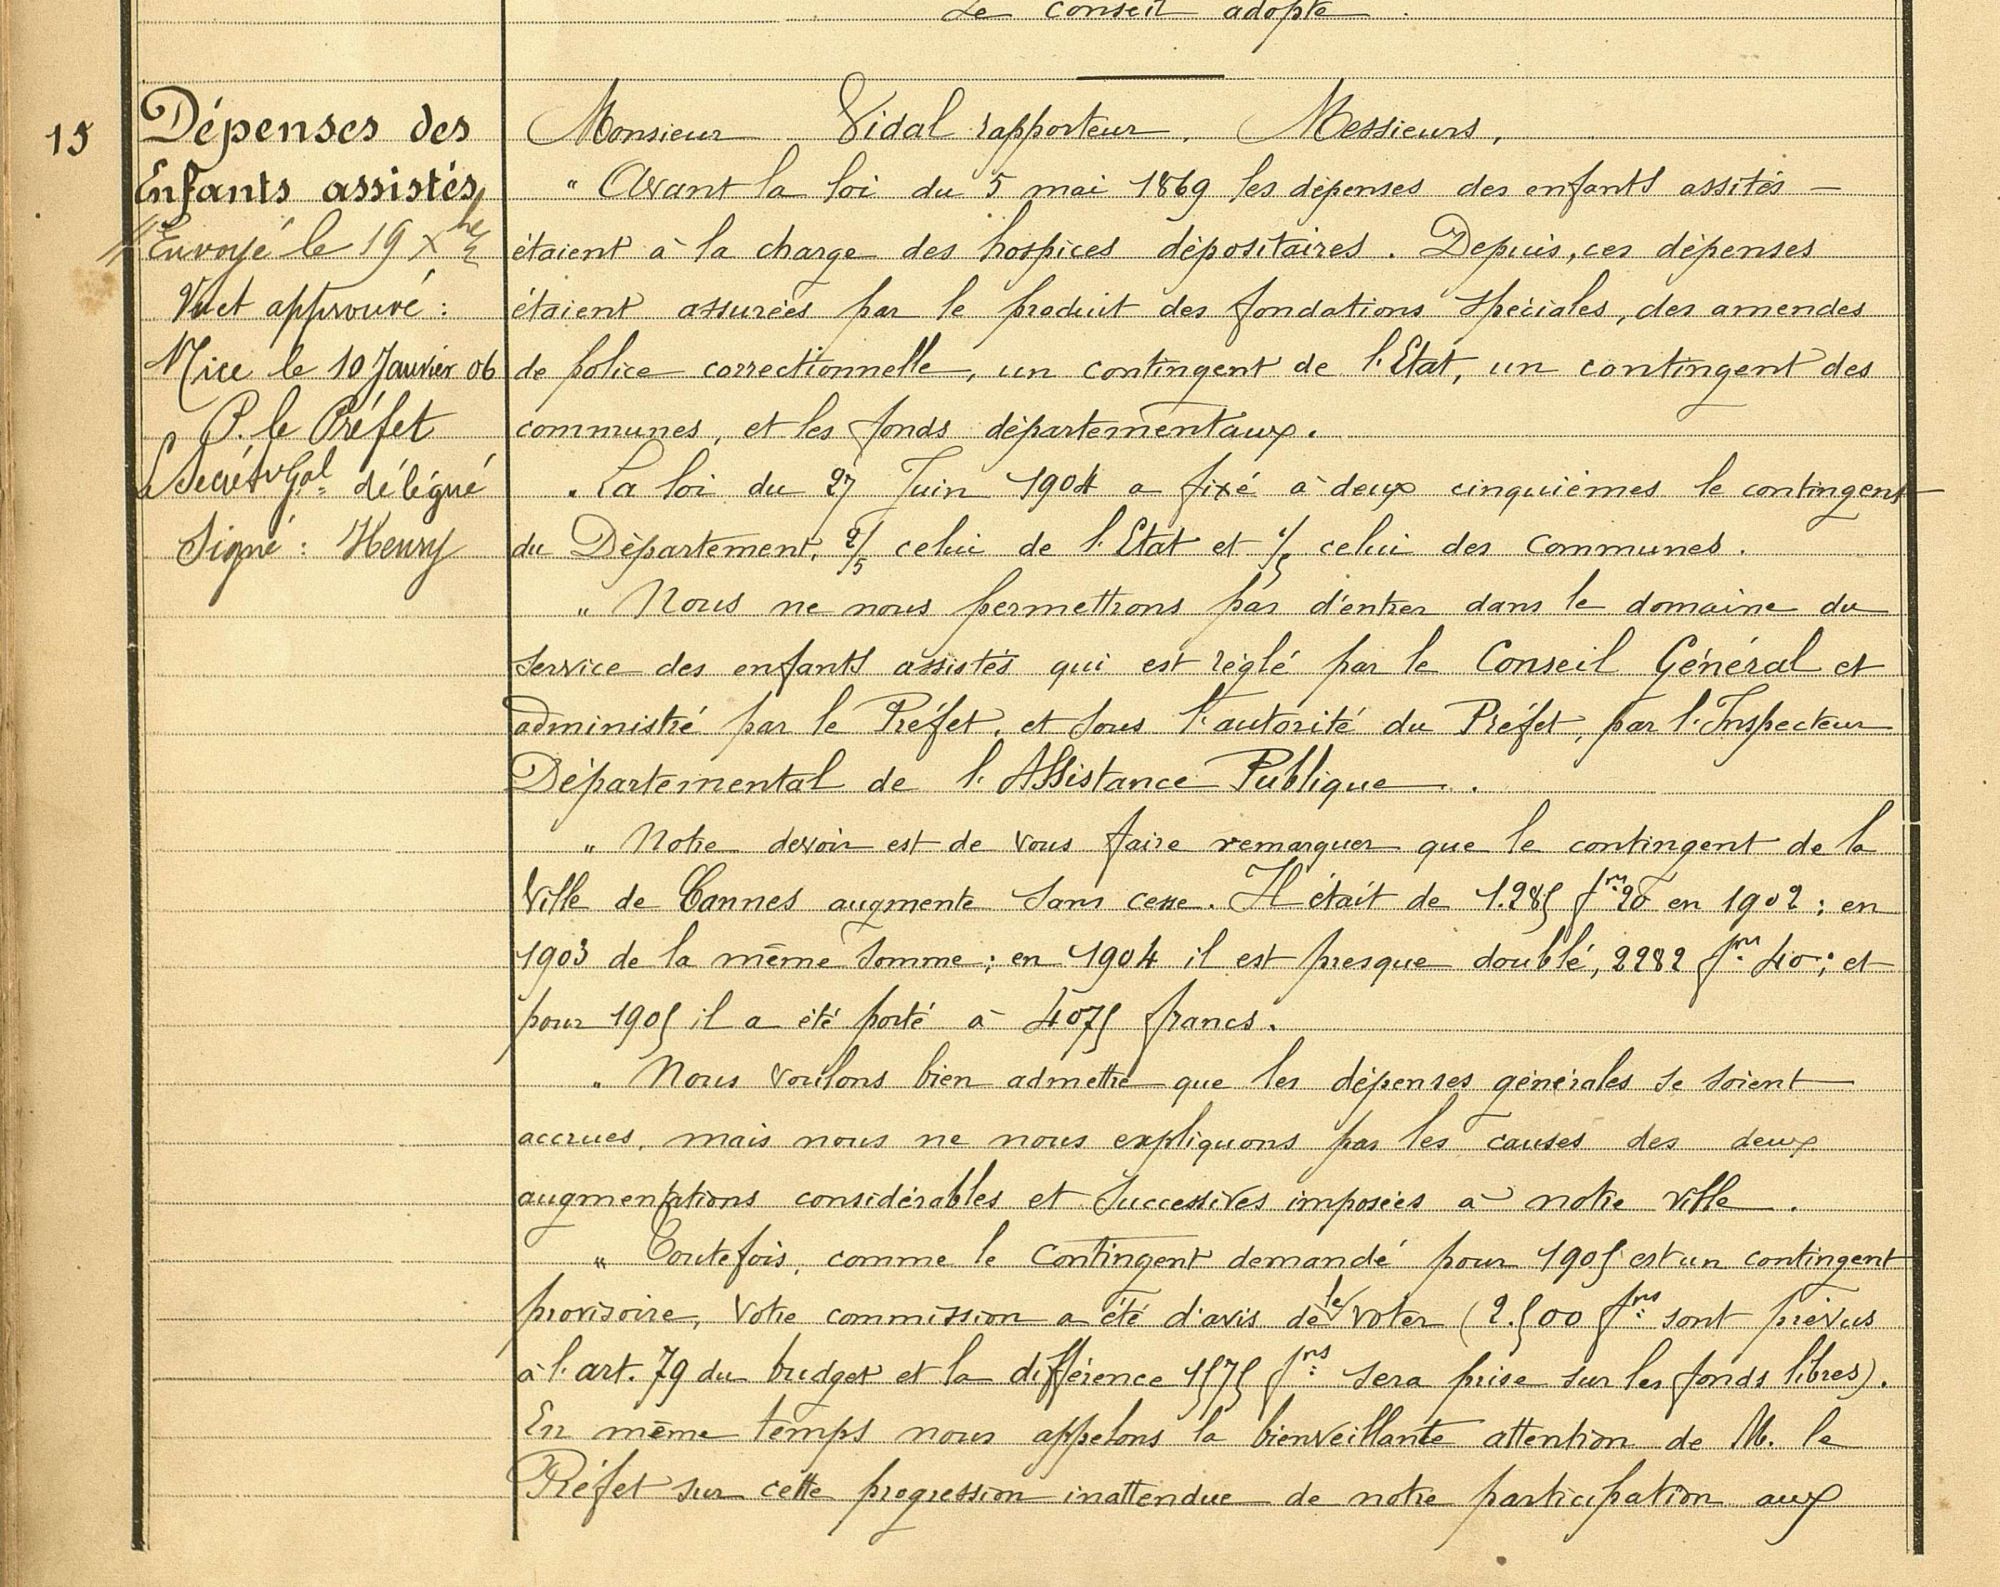 Le conseil adopte.
15
Dépenses des
Enfants assistés
Envoyé le 19 Xbre
Vu et approuvé :
Nice le 10 Janvier 06
P. le Préfet
Le Secrét. Gal délégué
Signé : Henry
Monsieur Vidal rapporteur. Messieurs,
" Avant la loi du 5 mai 1869 les dépenses des enfants assités –
étaient à la charge des hospices dépositaires. Depuis, ces dépenses
étaient assurées par le produit des fondations spéciales, des amendes
de police correctionnelle, un contingent de l'Etat, un contingent des
communes, et les fonds départementaux.
" La loi du 27 Juin 1904 a fixé à deux cinquièmes le contingent
du Département, 2/5 celui de l'Etat et 1/5 celui des communes.
" Nous ne nous permettrons pas d'entrer dans le domaine du
service des enfants assistés qui est réglé par le Conseil Général et
administré par le Préfet, et sous l'autorité du Préfet, par l'Inspecteur
Départemental de l'Assistance Publique.
" Notre devoir est de vous faire remarquer que le contingent de la
Ville de Cannes augmente sans cesse. Il était de 1.285 frs 20 en 1902 ; en
1903 de la même somme ; en 1904 il est presque doublé, 2282 frs 40 ; et
pour 1905 il a été porté à 4075 francs.
" Nous voulons bien admettre que les dépenses générales se soient
accrues, mais nous ne nous expliquons pas les causes des deux
augmentations considérables et successives imposées à notre ville.
" Toutefois, comme le contingent demandé pour 1905 est un contingent
provisoire, votre commission a été d'avis de le voter (2.500 frs sont prévus
à l'art. 79 du budget et la différence 1575 frs sera prise sur les fonds libres).
En même temps nous appelons la bienveillante attention de M. le
Préfet sur cette progression inattendue de notre participation aux